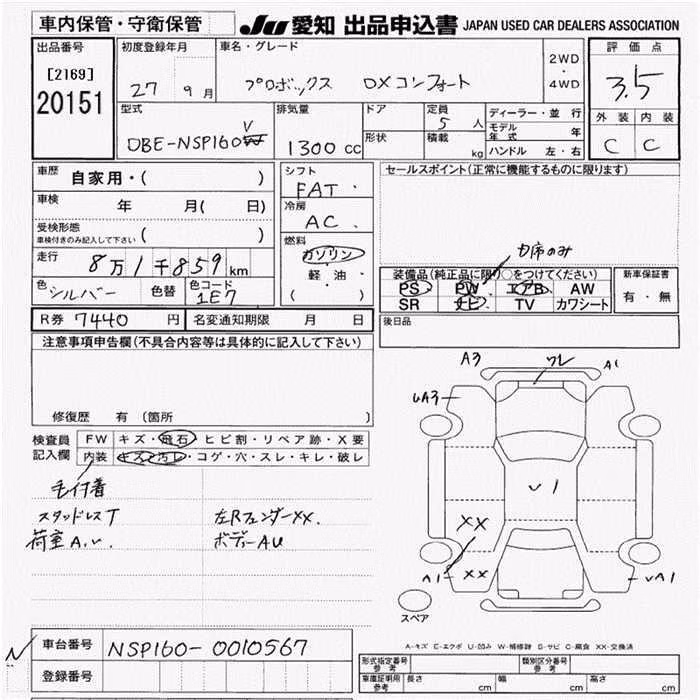 車内保管・守衛保管
JU 愛知 出品申込書 JAPAN USED CAR DEALERS ASSOCIATION
出品番号
[2169]
20151
初度登録年月
27 9月
車名・グレード
プロボックス DXコンフォート
2WD
・
4WD
評価点
3.5
外装 内装
C C
型式
DBE-NSP160V
排気量
1300 CC
ドア
形状
定員
5 人
積載
kg
ディーラー・並行
モデル年式 年
ハンドル 左・右
車歴
自家用・( )
車検
年 月( 日)
受検形態
車検付きのみ記入して下さい ( )
走行
8万1千859km
色
シルバー
色替
色コード
1E7
シフト
FAT・
冷房
AC・
燃料
ガソリン
・
軽油
・
( )
セールスポイント(正常に機能するものに限ります)
D席のみ
装備品(純正品に限り○をつけてください)
PS PW エアB AW
SR ナビ TV カワシート
新車保証書
有・無
R券 7440 円
名変通知期限 月 日
後日品
注意事項申告欄(不具合内容等は具体的に記入して下さい)
修復歴 有 (箇所 )
検査員
記入欄
FW キズ・飛石・ヒビ割・リペア跡・X要
内装 キズ・汚レ・コゲ・穴・スレ・キレ・破レ
毛付着
スタッドレスT
荷室A.U.
左Rフェンダー××.
ボディーAU
A3
ワレ
A1
UA3
U1
××
A1
××
UA1
スペア
A-キズ E-エクボ U-凹み W-補修跡 S-サビ C-腐食 XX-交換済
車台番号
NSP160-0010567
登録番号
形式指定番号
参考
類別区分番号
参考
車庫証明用
参考
長さ cm
幅 cm
高さ cm